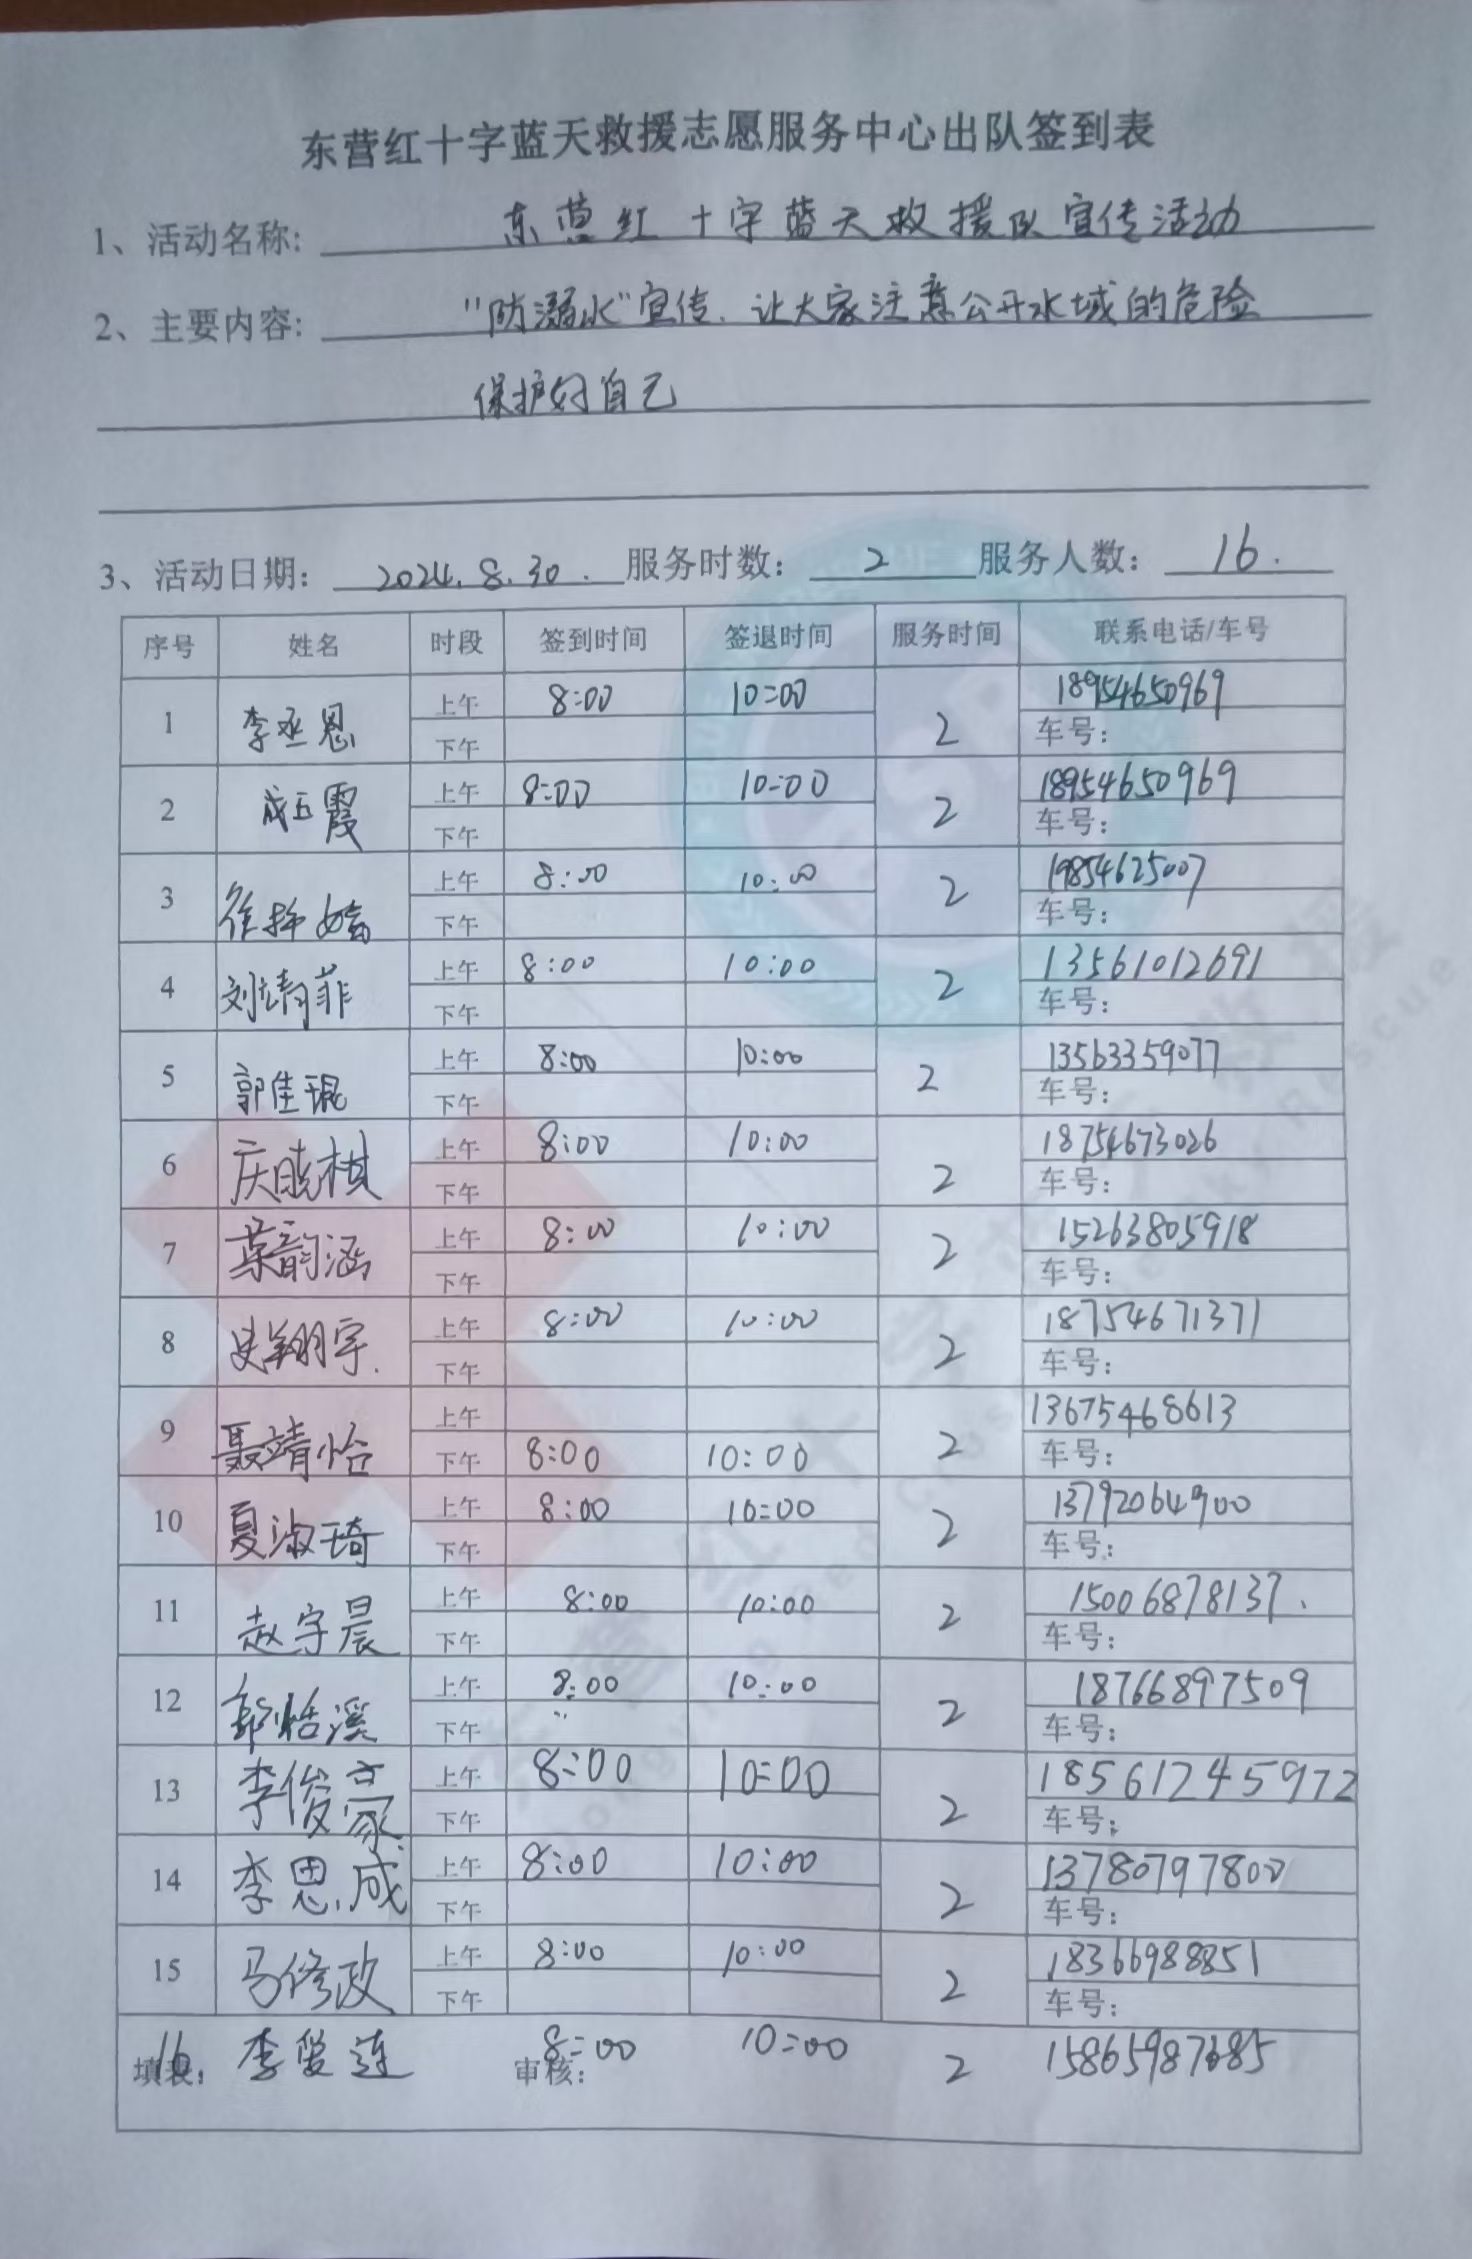 东营红十字蓝天救援志愿服务中心出队签到表
1、活动名称: 东营红十字蓝天救援队宣传活动
2、主要内容: "防溺水"宣传. 让大家注意公开水域的危险
保护好自己
3、活动日期: 2024.8.30. 服务时数: 2 服务人数: 16.
序号 姓名 时段 签到时间 签退时间 服务时间 联系电话/车号
1 李丞恩 上午 8:00 10:00 2 18954650969
下午 车号:
2 成玉霞 上午 8:00 10:00 2 18954650969
下午 车号:
3 徐 上午 8:00 10:00 2 19854625007
下午 车号:
4 刘靖菲 上午 8:00 10:00 2 13561012691
下午 车号:
5 郭佳琨 上午 8:00 10:00 2 13563359077
下午 车号:
6 庆晓棋 上午 8:00 10:00 2 18754673026
下午 车号:
7 葉韵涵 上午 8:00 10:00 2 15263805918
下午 车号:
8 史翔宇. 上午 8:00 10:00 2 18754671371
下午 车号:
9 聂靖怡 上午 2 13675468613
下午 8:00 10:00 车号:
10 夏淑琦 上午 8:00 10:00 2 13792064900
下午 车号:
11 赵宇晨 上午 8:00 10:00 2 15006878137.
下午 车号:
12 郭恬溪 上午 8:00 10:00 2 18766897509
下午 车号:
13 李俊豪 上午 8:00 10:00 2 185612745972
下午 车号:
14 李思成 上午 8:00 10:00 2 13780797800
下午 车号:
15 马修政 上午 8:00 10:00 2 18366988851
下午 车号:
16 李爱连 8:00 10:00 2 15865987685
填表: 审核: